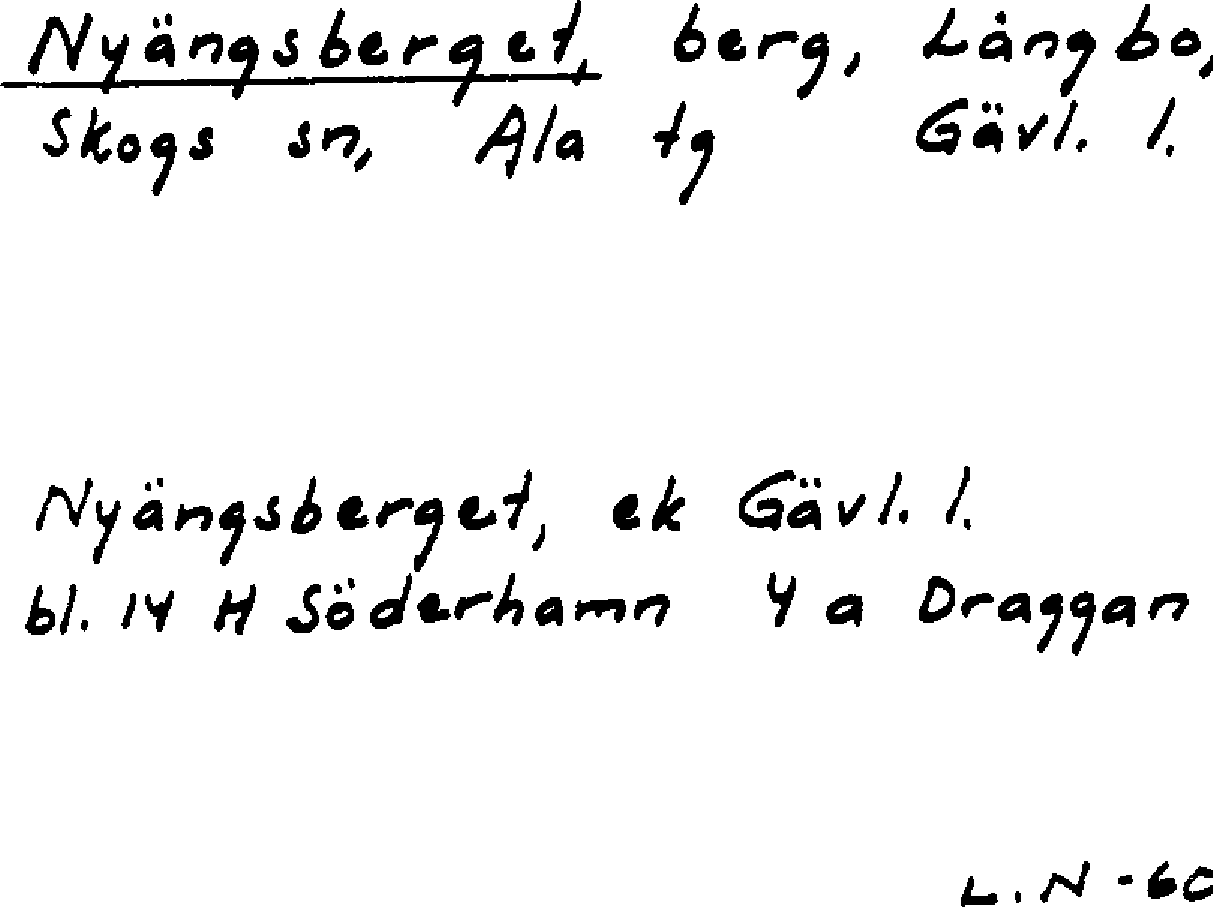 Nyängsberget, berg, Långbo,
Skogs sn, Ala tg Gävl. l.
Nyängsberget, ek Gävl. l.
bl. 14 H Söderhamn 4 a Draggan
L. N - 60